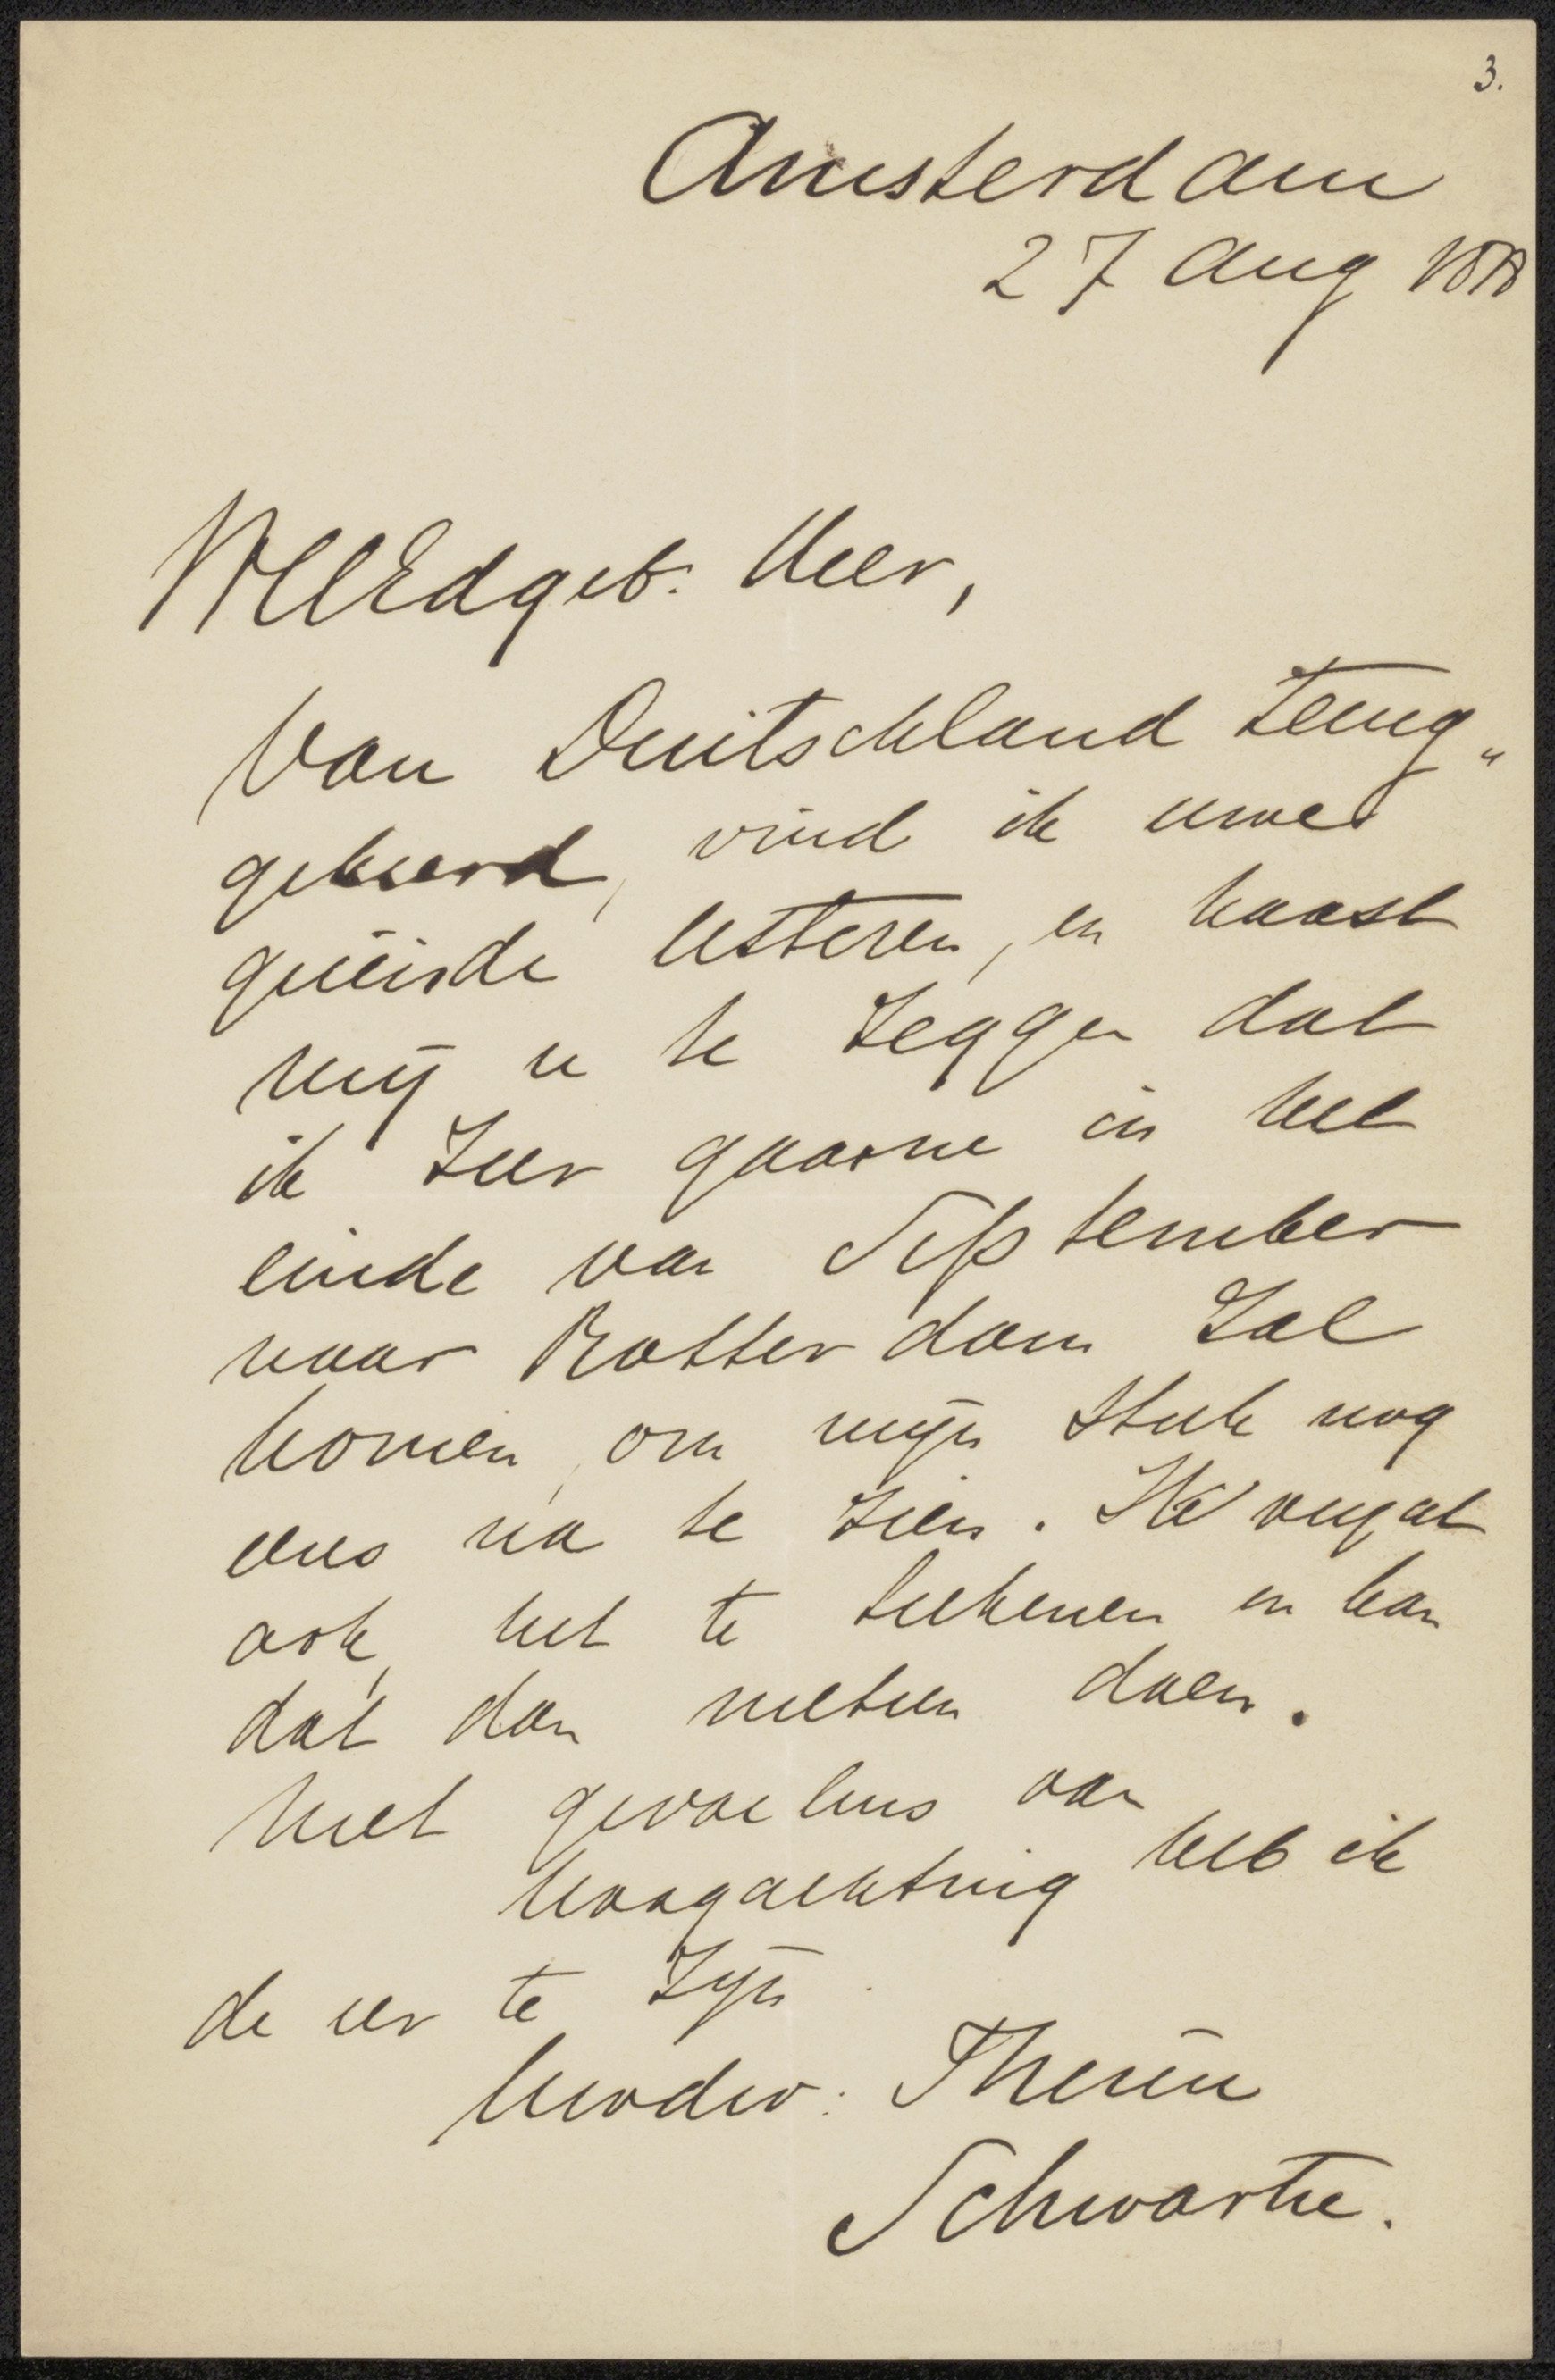 3.
Amsterdam
27 Aug
WelEdgeb. Heer,
Van Duitschland terug„
gekeerd, vind ik uwe
geëerde letteren, en haast
mij u te zeggen dat
ik zeer gaarne in het
einde van September
naar Rotterdam zal
komen, om mijn stuk nog
eens na te zien. Ik vergat
ook, het te teekenen en kan
dat dan meteen doen.
Met gevoelens van
hoogachting heb ik
de eer te zijn
Uwdw: Thérèse
Schwartze.